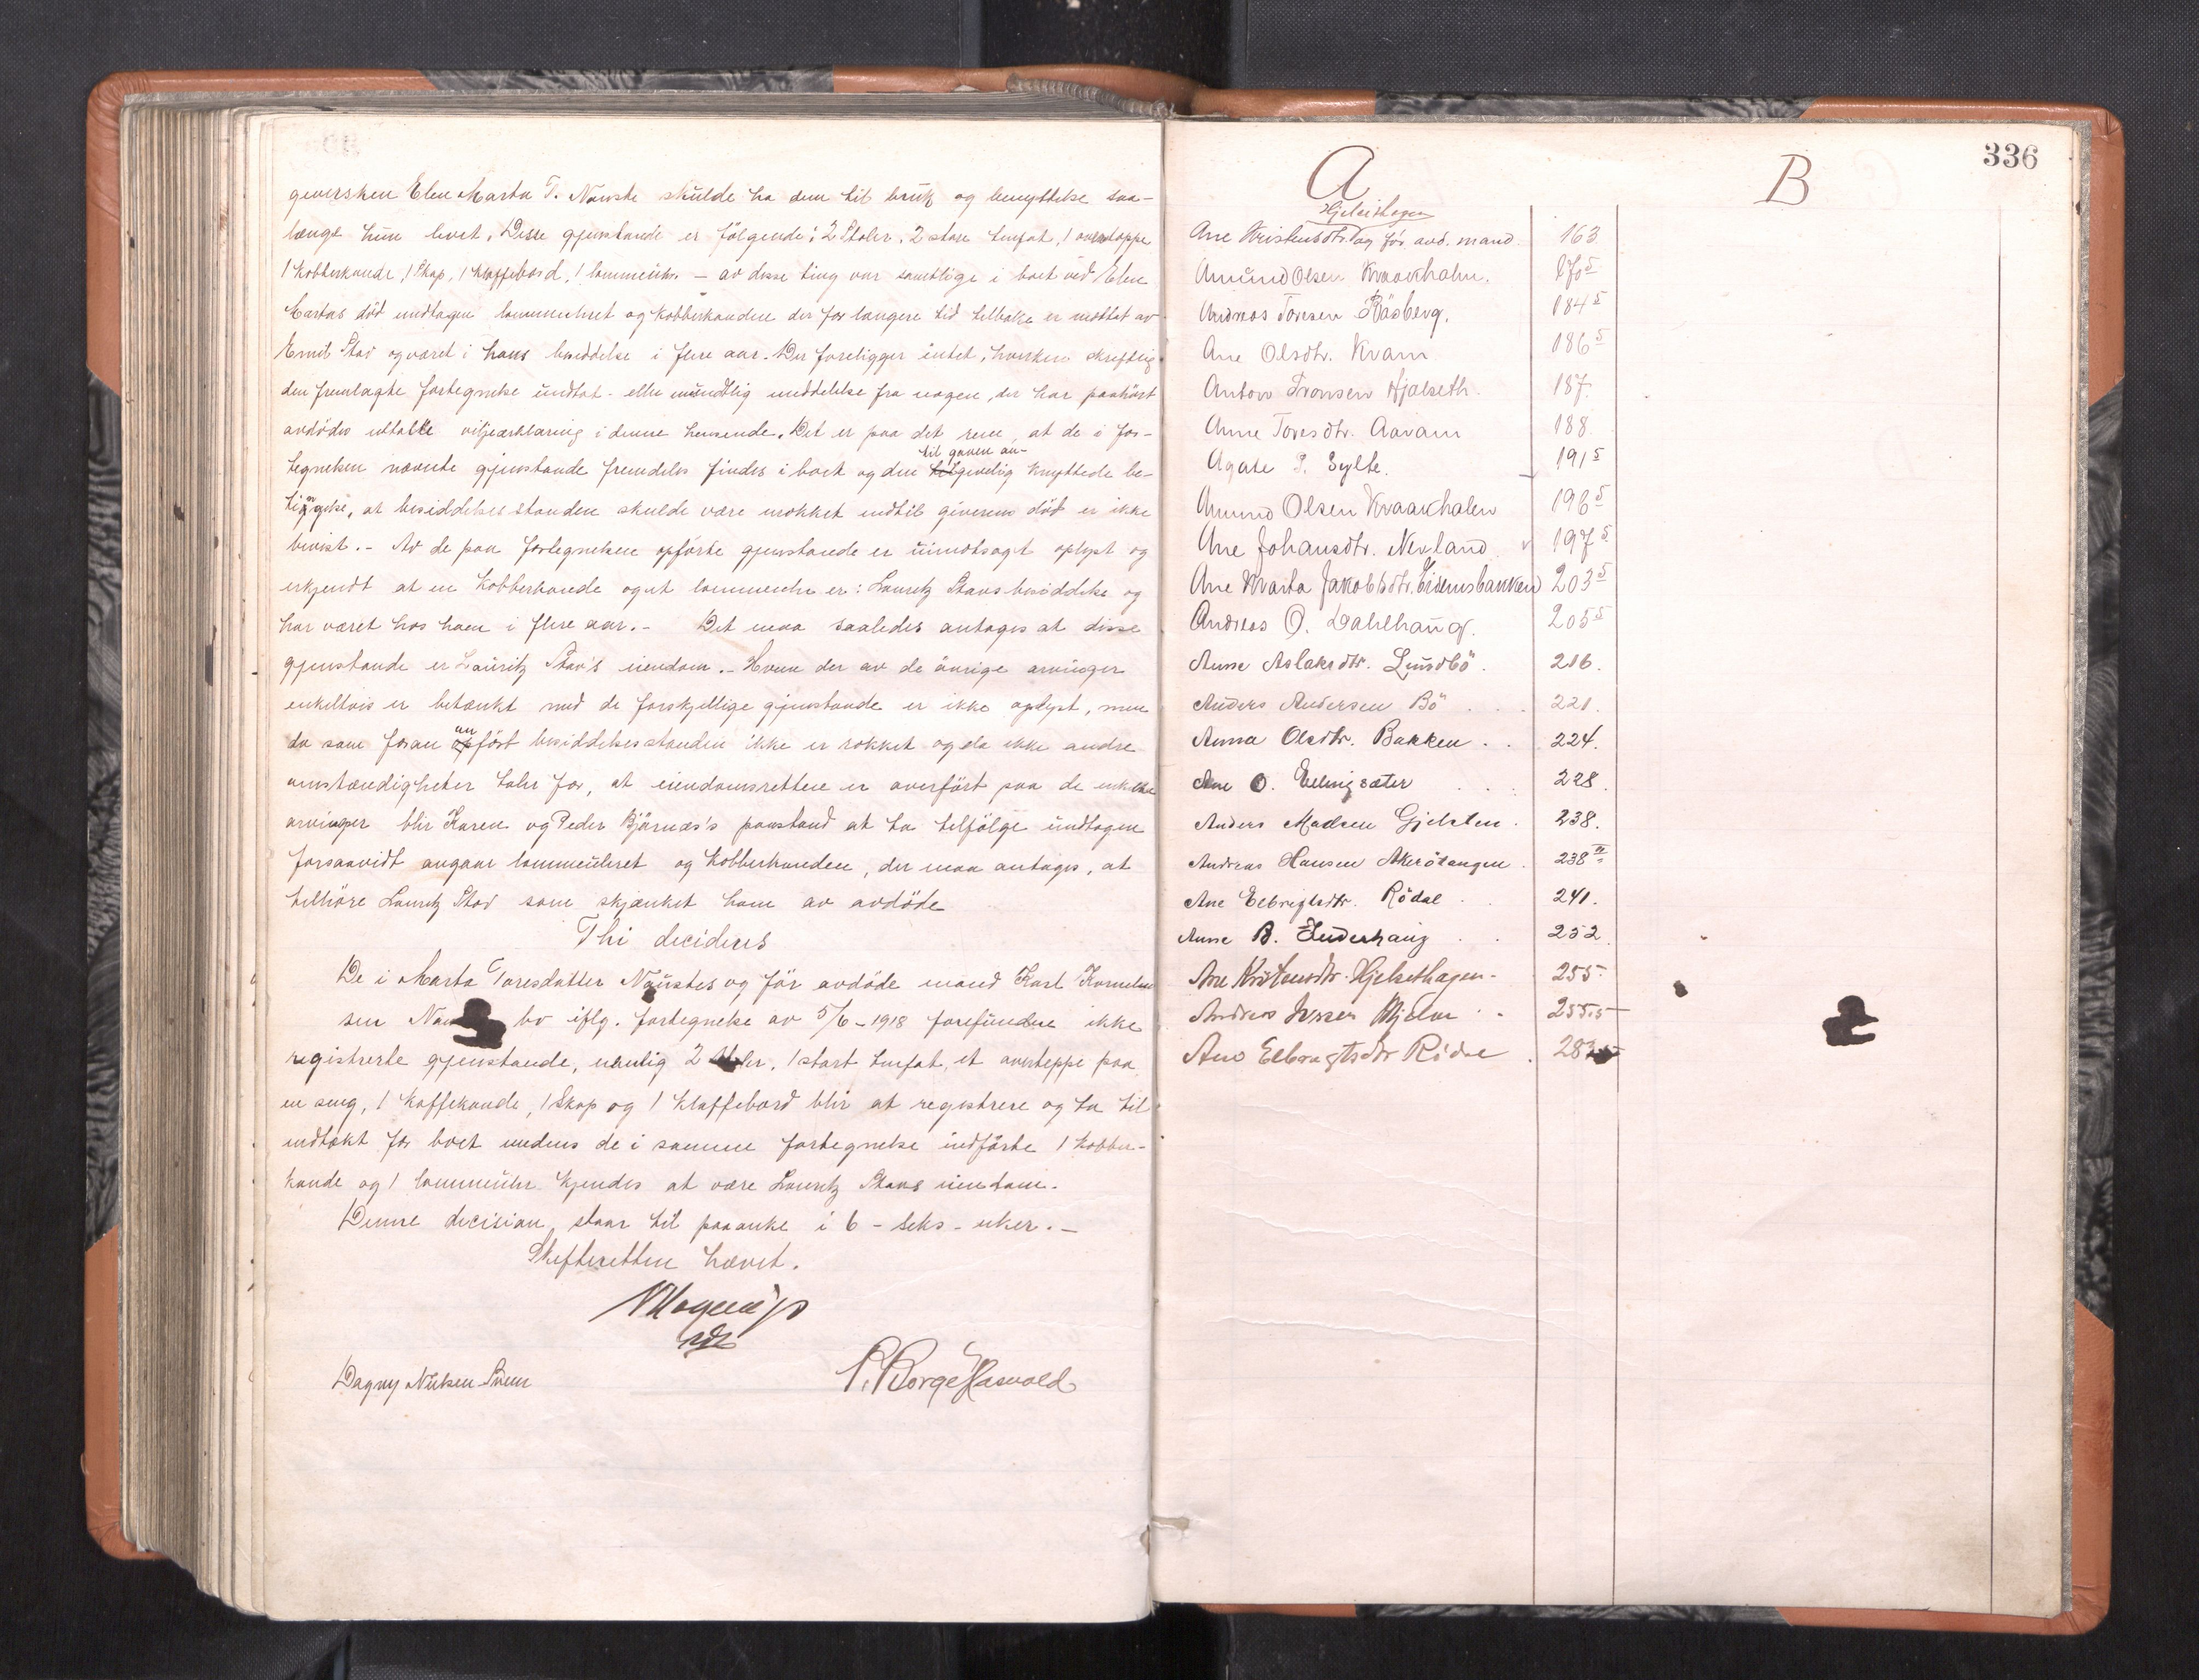 geversken Elen Marta T. Nauste skulde ha dem til bruk og benyttelse saa-
længe hun levet. Disse gjenstande er følgende: 2 Stoler, 2 store tinfat, 1 overteppe
1 Kobberkande, 1 Skap, 1 Klaffebord, 1 lommeuhr. – av disse ting var samtlige i boet ved Elen
Martas död undtagen lommeuhret og Kobberkanden der for længere tid tilbake er mottat av
Emil Stav og været i hans besiddelse i flere aar. Der foreligger intet, hverken skriftlig
den fremlagte fortegnelse undtat – eller mundtlig meddelelse fra nogen, der har paahört
avdödes uttalte viljeærklæring i denne henseende. Det er paa det rene, at de i for-
tegnelsen nævnte gjenstande fremdeles findes i boet og den til gaven knyttede be-
tingelse, at besiddelsesstanden skulde være urokket indtil giverens död er ikke
bevist. – Av de paa fortegnelsen opförte gjenstande er uimotsagt oplyst og
erkjendt at en Kobberkande og et lommeuhr er i Lauritz Stavs besiddelse og
har været hos ham i flere aar. – Det maa saaledes antages at disse
gjenstande er Lauritz Stav's eiendom. – Hvem der av de övrige arvinger
enkeltvis er betænkt med de forskjellige gjenstande er ikke oplyst, men
da som foran anfört besiddelsesstanden ikke er rokket og da ikke andre
omstændigheter taler for, at eiendomsretten er overfört paa de enkelte
arvinger blir Karen og Peder Björnæs's paastand at ta tilfölge undtagen
forsaavidt angaar lommeuhret og Kobberkanden, der maa antages, at
tilhöre Lauritz Stav som skjænket ham av avdöde
Thi decideres
De i Marta Toresdatter Naustes og för avdöde mand Karl Kornelius-
sen bo iflg. fortegnelse av 5/6-1918 forefundne ikke
registrerte gjenstande, nemlig 2 Stoler, 1 stort tinfat, et overteppe paa
en seng, 1 Kaffekande, 1 Skap og 1 Klaffebord blir at registrere og ta til
indtækt for boet medens de i samme fortegnelse indförte 1 Kobber-
kande og 1 lommeuhr kjendes at være Lauritz Stavs eiendom.
Denne decision staar til paaanke i 6 – seks – uker. –
Skifteretten hævet.
Dagny Nielsen
P. Borge Hasvold
336
A
B
Hjelsethagen
Ane Kristensdtr. og för avd. mand 163
Amund Olsen Kraakholm. 170 5
Andreas Toresen Råsberg. 184 5
Ane Olsdtr. Kvam 186 5
Anton Tronsen Hjelseth. 187.
Anne Toresdtr. Aaram 188.
Agate P. Sylte. 191 5
Amund Olsen Kraakholm 196 5
Ane Johansdtr. Nevland 197 5
Ane Marta Jakobsdtr. Eidemsbakken 203 5
Andreas O. Dahlhaug. 205 5
Anne Aslaksdtr. Lundbö. 216.
Anders Andersen Bö . . . 221.
Anna Olsdtr. Bakken . . 224.
Ane O. Ellingsæter . . . 228.
Anders Madsen Gjelsten . 238.
Andreas Hansen Akerötangen . 238 II
Ane Elbrigtsdtr. Rödal . . 241.
Anne B. Huderhaug . . 252.
Ane Kristensdtr. Hjelsethagen - 255.
Andreas Iversen Mjelve . . 255.5
Ane Elbregtsdtr Rödal . 283